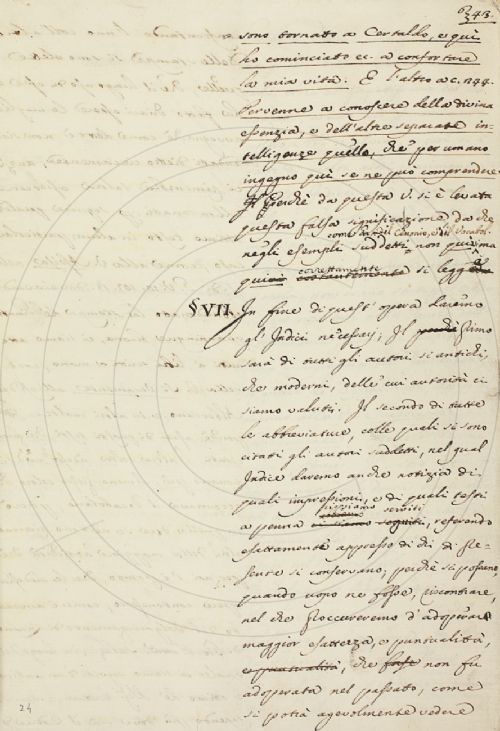 343.
sono tornato a Certaldo, e qui
ho cominciato ec. a confortare
la mia vita. E l'altro a c. 244.
Pervenne a conoscere della divina
essenzia, e dell'altre separate in-
telligenze quello, che per umano
ingegno qui se ne può comprendere
Perchè da questa V. si è levata
questa falsa significazione, da che
negli esempli suddetti non qui, ma
quivi correttamente costantemente si legge
§VII. In fine di quest'opera daremo
gl'Indici necessarj; Il primo
sarà di tutti gli autori sì antichi,
che moderni, delle cui autorità ci
siamo valuti. Il secondo di tutte
le abbreviature, colle quali si sono
citati gli autori suddetti, nel qual
Indice daremo anche notizia di
quali impressioni, e di quali testi
a penna ci siamo serviti, referendo
esattamente appresso di chi di pre-
sente si conservano; perchè si possano
quando uopo ne fosse, riscontrare,
nel che proccureremo d'adoperare
maggior esattezza, e puntualità,
e puntualità, che forse non fu
adoperata nel passato, come
si potrà agevolmente vedere
24